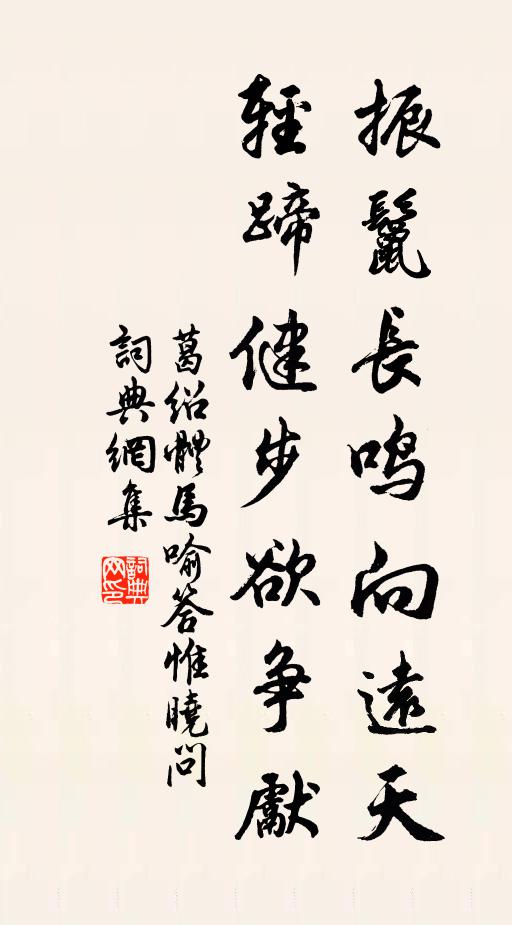 振鬣長鳴向遠天
輕蹄健步欲争獻
葛紹體馬喻答惟曉問
詞典網集
詞典网印